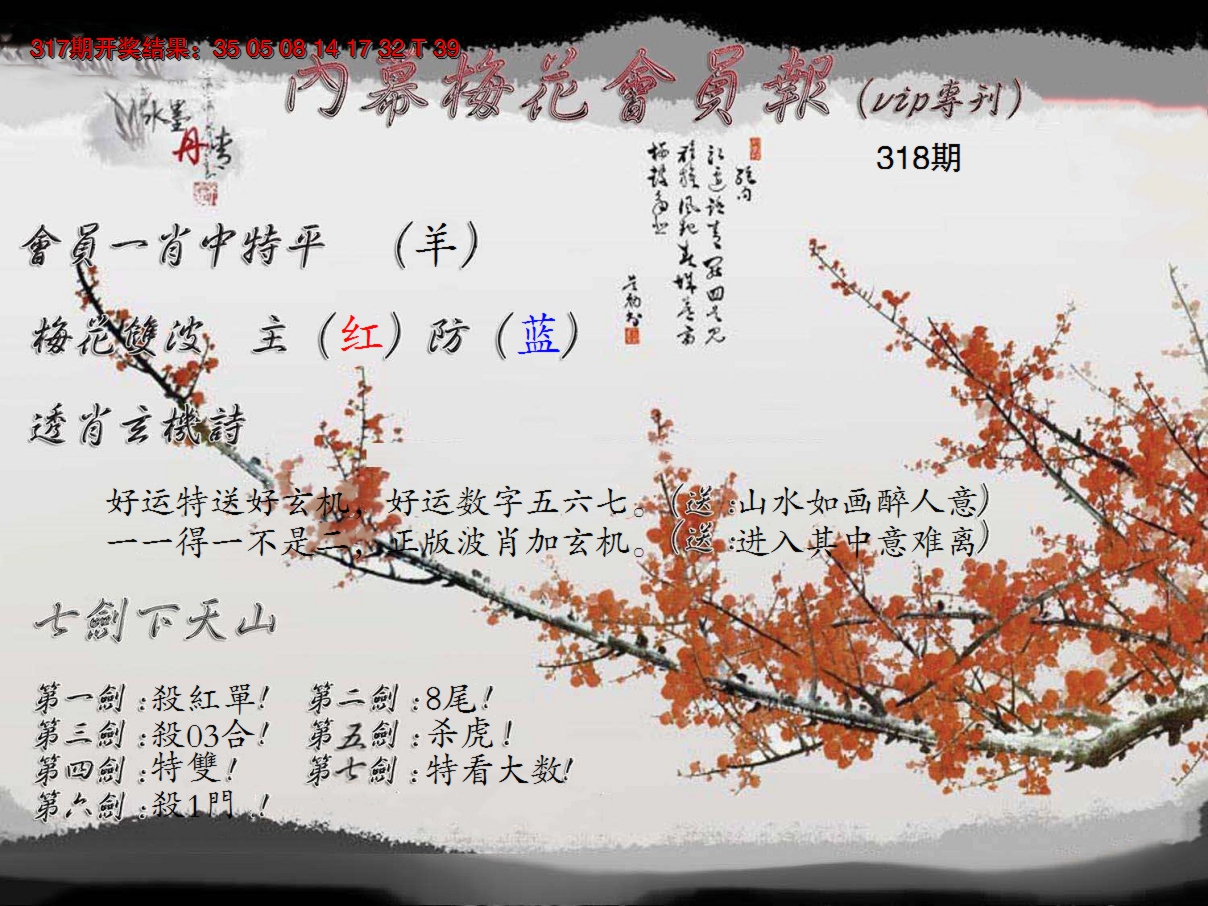 317期开奖结果：35 05 08 14 17 32 T 39
內幕梅花會員報（vip專刊）
水墨丹情
318期
會員一肖中特平 （羊）
梅花雙波 主（红）防（蓝）
透肖玄機詩
好运特送好玄机，好运数字五六七。（送:山水如画醉人意）
一一得一不是二；正版波肖加玄机。（送:进入其中意难离）
七劍下天山
第一劍:殺紅單! 第二劍:8尾!
第三劍:殺03合! 第五劍:杀虎!
第四劍:特雙! 第七劍:特看大数!
第六劍:殺1門 !